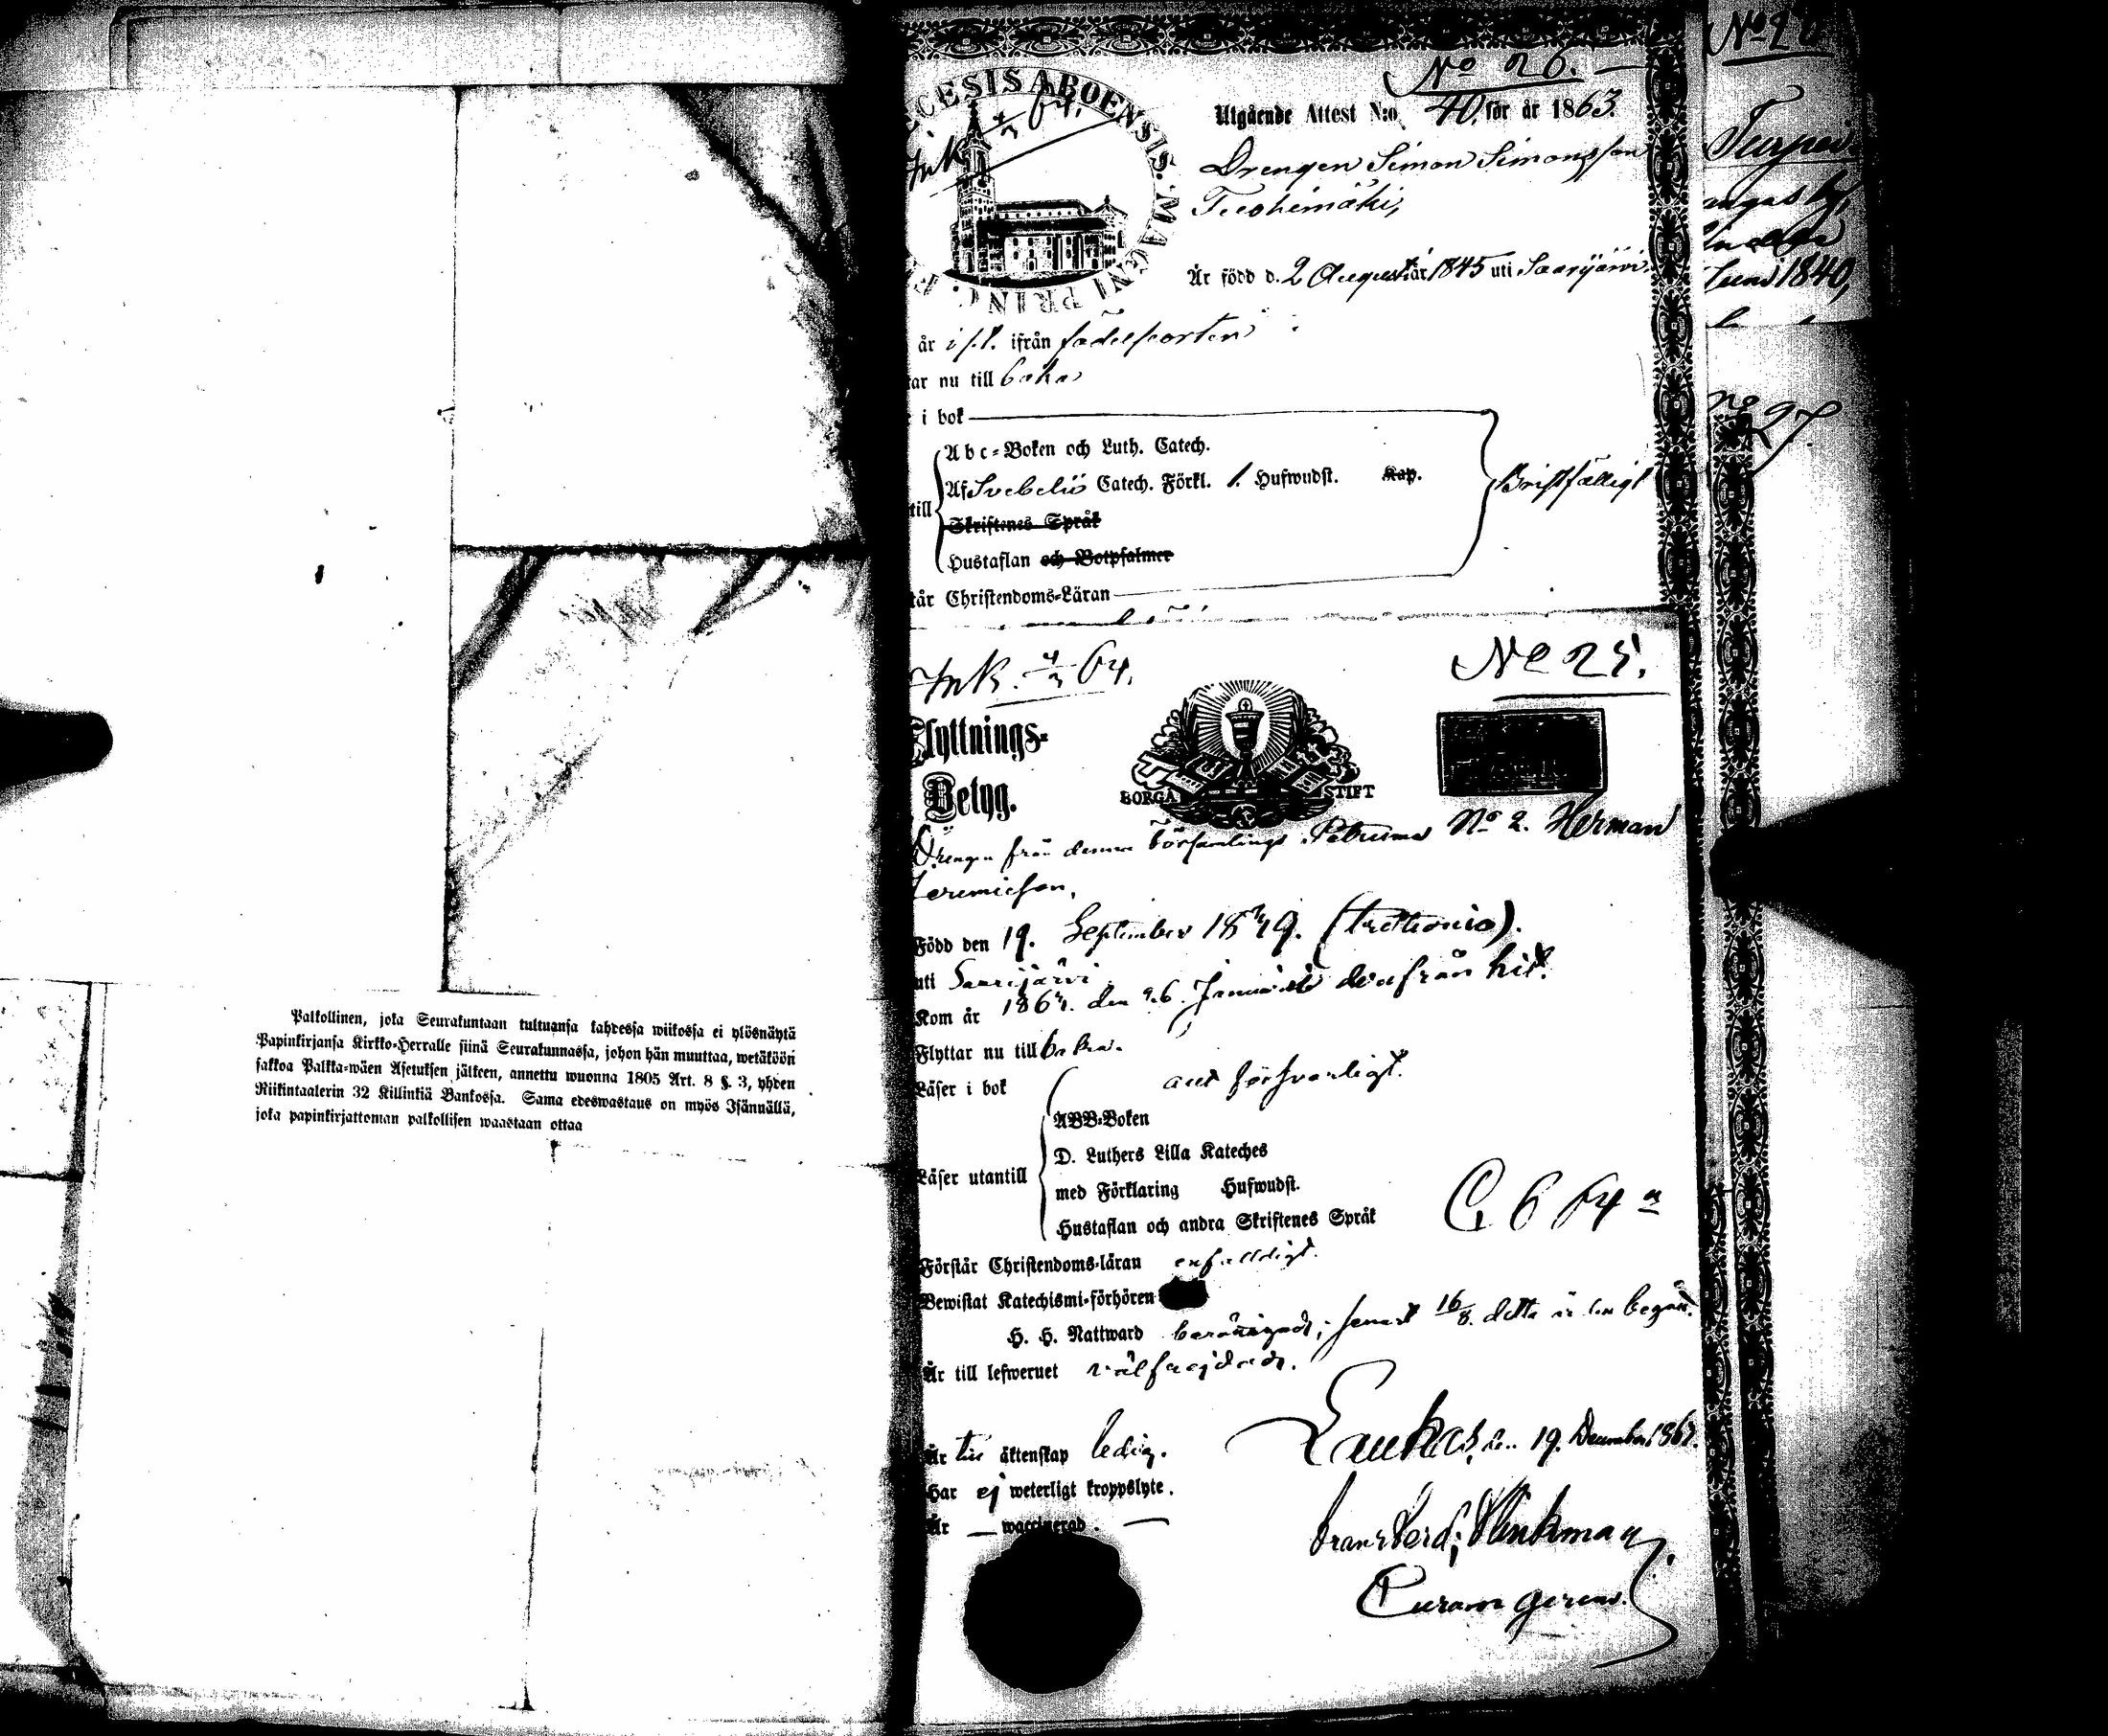 Palkollinen, joka Seurakuntaan tultuansa kahdessa wiikossa ei ylösnäytä
Papinkirjansa Kirkko-Herralle siinä Seurakunnassa, johon hän muuttaa, wetäköön
sakkoa Palkka-wäen Asetuksen jälkeen, annettu wuonna 1805 Art. 8 §. 3, yhden
Riikintaalerin 32 Killinkiä Bankossa. Sama edeswastaus on myös Isännällä,
joka papinkirjattoman palkollisen waastaan ottaa
No 26.
CESIS ABOENSIS. MAGNI PRINC.
Ink 4/3 64.
Utgående Attest N:o 40. för år 1863.
Drengen Simon Simonsson
Är född d. 2 Augusti år 1845 uti Saarijärvi.
år ifrån
ar nu till
i bok
Abc-Boken och Luth. Catech.
Af Svebelii Catech. Förkl. 1. Hufwudst. Kap.
till
Skriftenes Språk
Hustaflan och Botpsalmer
Bristfälligt
tår Christendoms-Läran
Ink. 4/3 64.
No 25.
Flyttnings-
Betyg.
BORGÅ STIFT
Drengen från denna församlings No 2. Herman
Jeremiesson,
Född den 19. September 1849.
uti Saarijärvi.
Kom år den 26. Januarii derifrån hit.
Flyttar nu till
Läser i bok försvarligt.
ABB-Boken
D. Luthers Lilla Kateches
Läser utantill
med Förklaring Hufwudst.
Hustaflan och andra Skriftenes Språk
Förstår Christendoms-läran enfalldigt.
Bewistat Katechismi-förhören
H. H. Nattward berättigad; senast 16/8 detta år den begått.
Är till lefwernet välfrejdad.
Är till äktenskap ledig.
Laukas, den 19. December
Har ej weterligt kroppslyte.
Är — waccinerad. —
Curam gerens.
No
1840,
No 27.